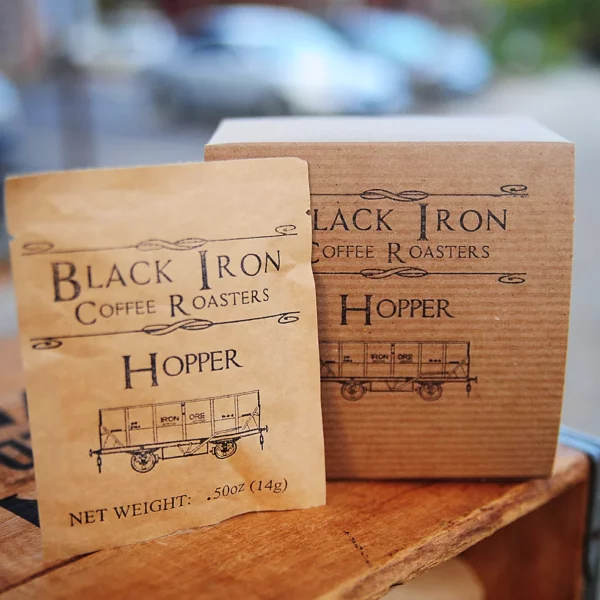 BLACK IRON
COFFEE ROASTERS
HOPPER
IRON ORE
NET WEIGHT: .50oz (14g)
LACK IRON
COFFEE ROASTERS
HOPPER
IRON ORE